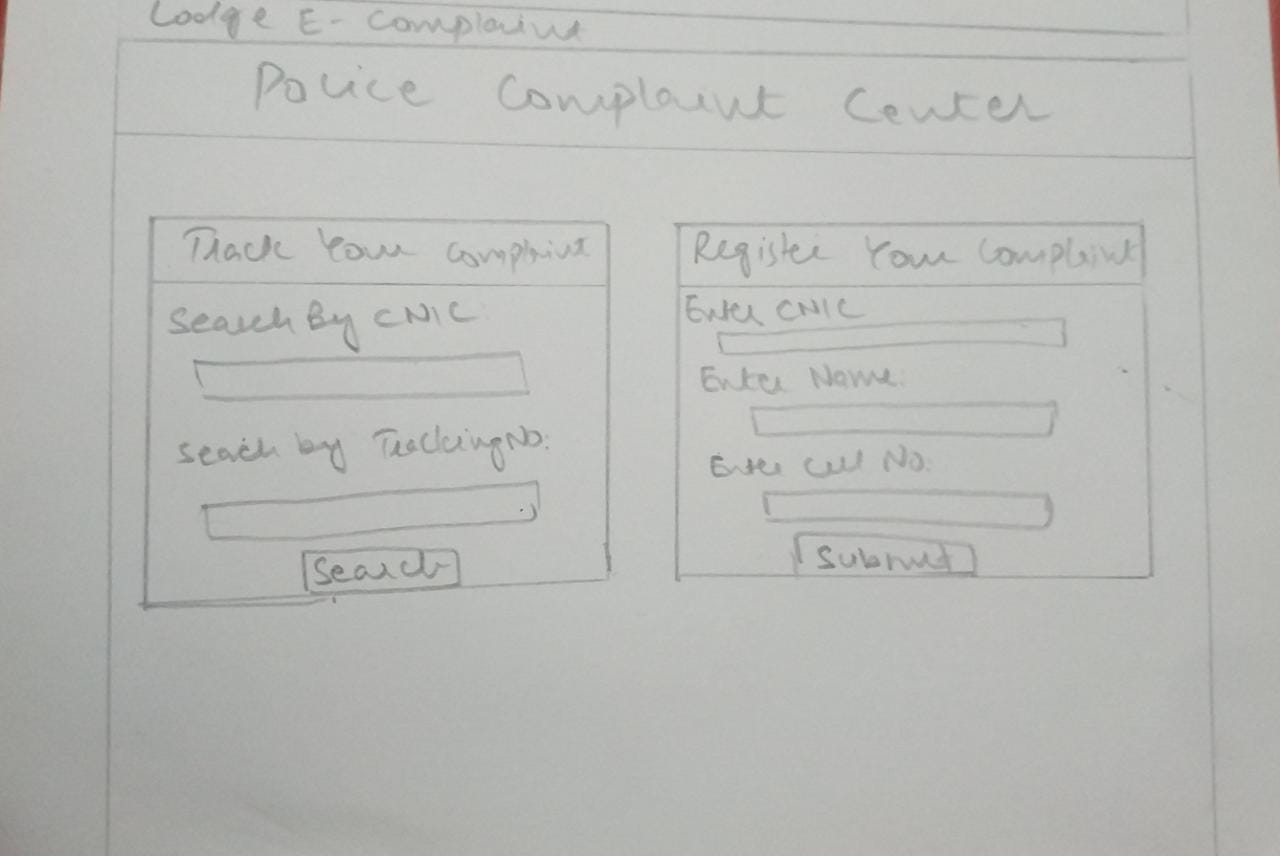 Lodge E-Complaint
Police Complaint Center
Track Your Complaint
Search By CNIC
Search by Tracking No:
Search
Register Your Complaint
Enter CNIC
Enter Name:
Enter Cell No:
Submit